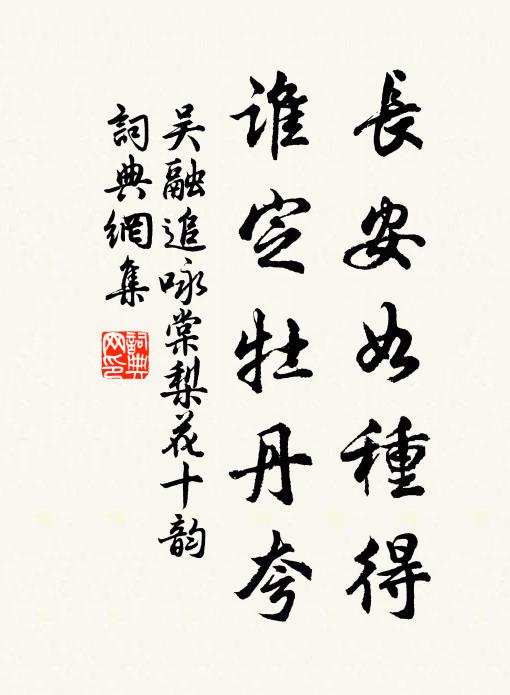 長安如種得
誰定牡丹夸
吴融追咏棠梨花十韵
詞典網集
詞典網印